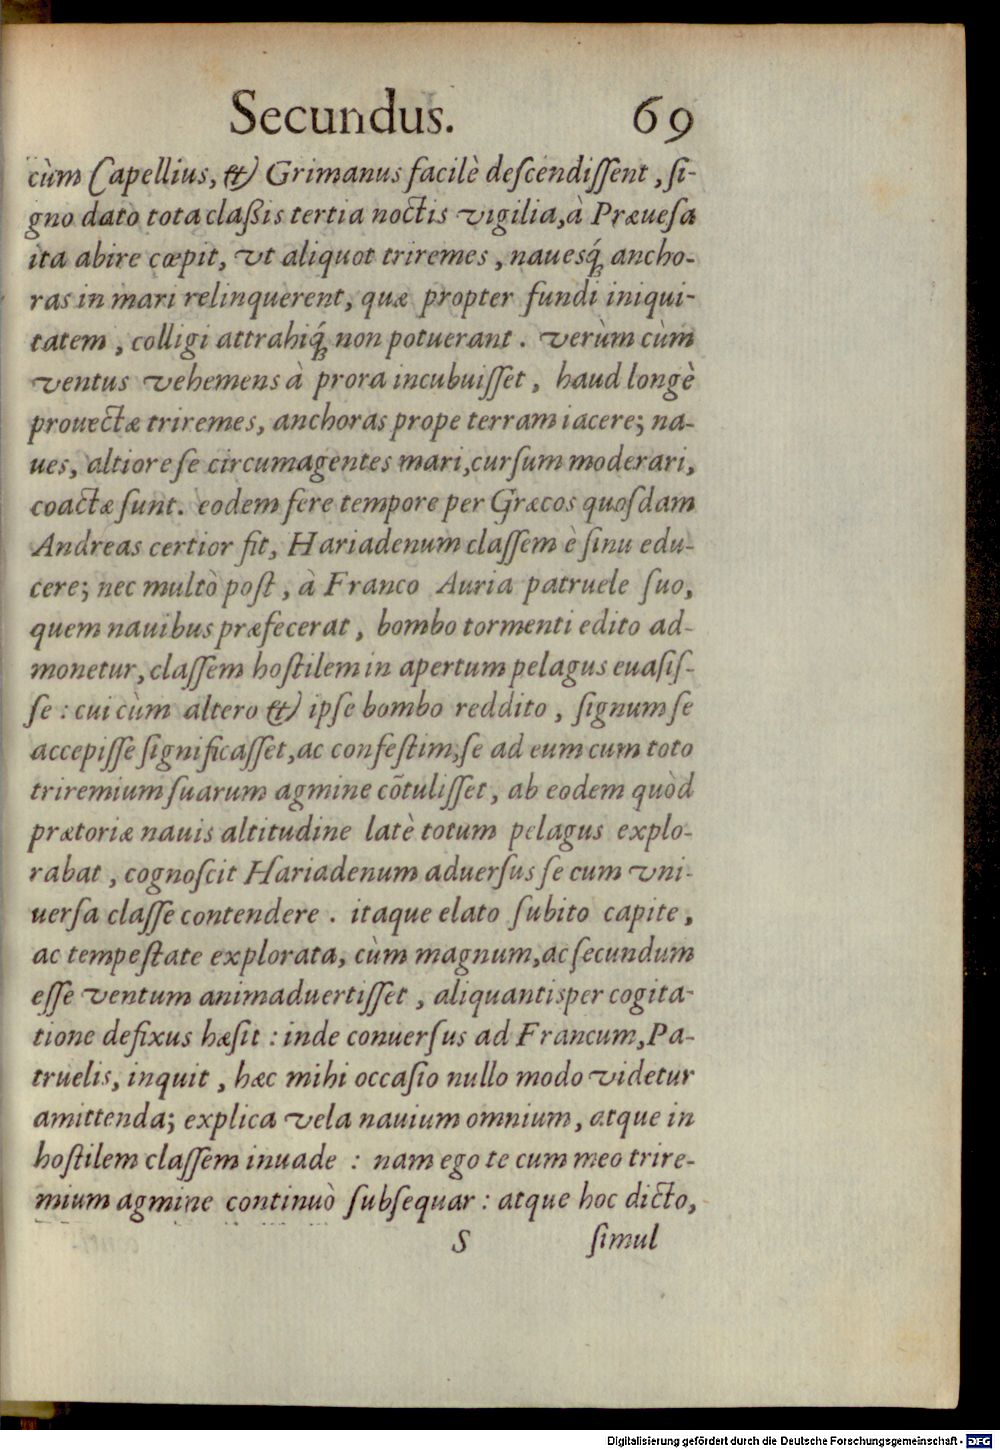 Secundus. 69
cùm Capellius, & Grimanus facilè deſcendiſſent, ſi-
gno dato tota claßis tertia noctis vigilia, à Præueſa
ita abire cœpit, vt aliquot triremes, nauesq́ꝫ ancho-
ras in mari relinquerent, quæ propter fundi iniqui-
tatem, colligi attrahiq́ꝫ non potuerant. verùm cùm
ventus vehemens à prora incubuiſſet, haud longè
prouectæ triremes, anchoras prope terram iacere; na-
ues, altiore ſe circumagentes mari, curſum moderari,
coactæ ſunt. eodem fere tempore per Græcos quoſdam
Andreas certior fit, Hariadenum claſſem è ſinu edu-
cere; nec multò poſt, à Franco Auria patruele ſuo,
quem nauibus præfecerat, bombo tormenti edito ad-
monetur, claſſem hoſtilem in apertum pelagus euaſiſ-
ſe: cui cùm altero & ipſe bombo reddito, ſignum ſe
accepiſſe ſignificaſſet, ac confeſtim, ſe ad eum cum toto
triremium ſuarum agmine cõtuliſſet, ab eodem quòd
prætoriæ nauis altitudine latè totum pelagus explo-
rabat, cognoſcit Hariadenum aduerſus ſe cum vni-
uerſa claſſe contendere. itaque elato ſubito capite,
ac tempeſtate explorata, cùm magnum, ac ſecundum
eſſe ventum animaduertiſſet, aliquantisper cogita-
tione defixus hæſit: inde conuerſus ad Francum, Pa-
truelis, inquit, hæc mihi occaſio nullo modo videtur
amittenda; explica vela nauium omnium, atque in
hoſtilem claſſem inuade: nam ego te cum meo trire-
mium agmine continuò ſubſequar: atque hoc dicto,
S ſimul
Digitalisierung gefördert durch die Deutsche Forschungsgemeinschaft - DFG